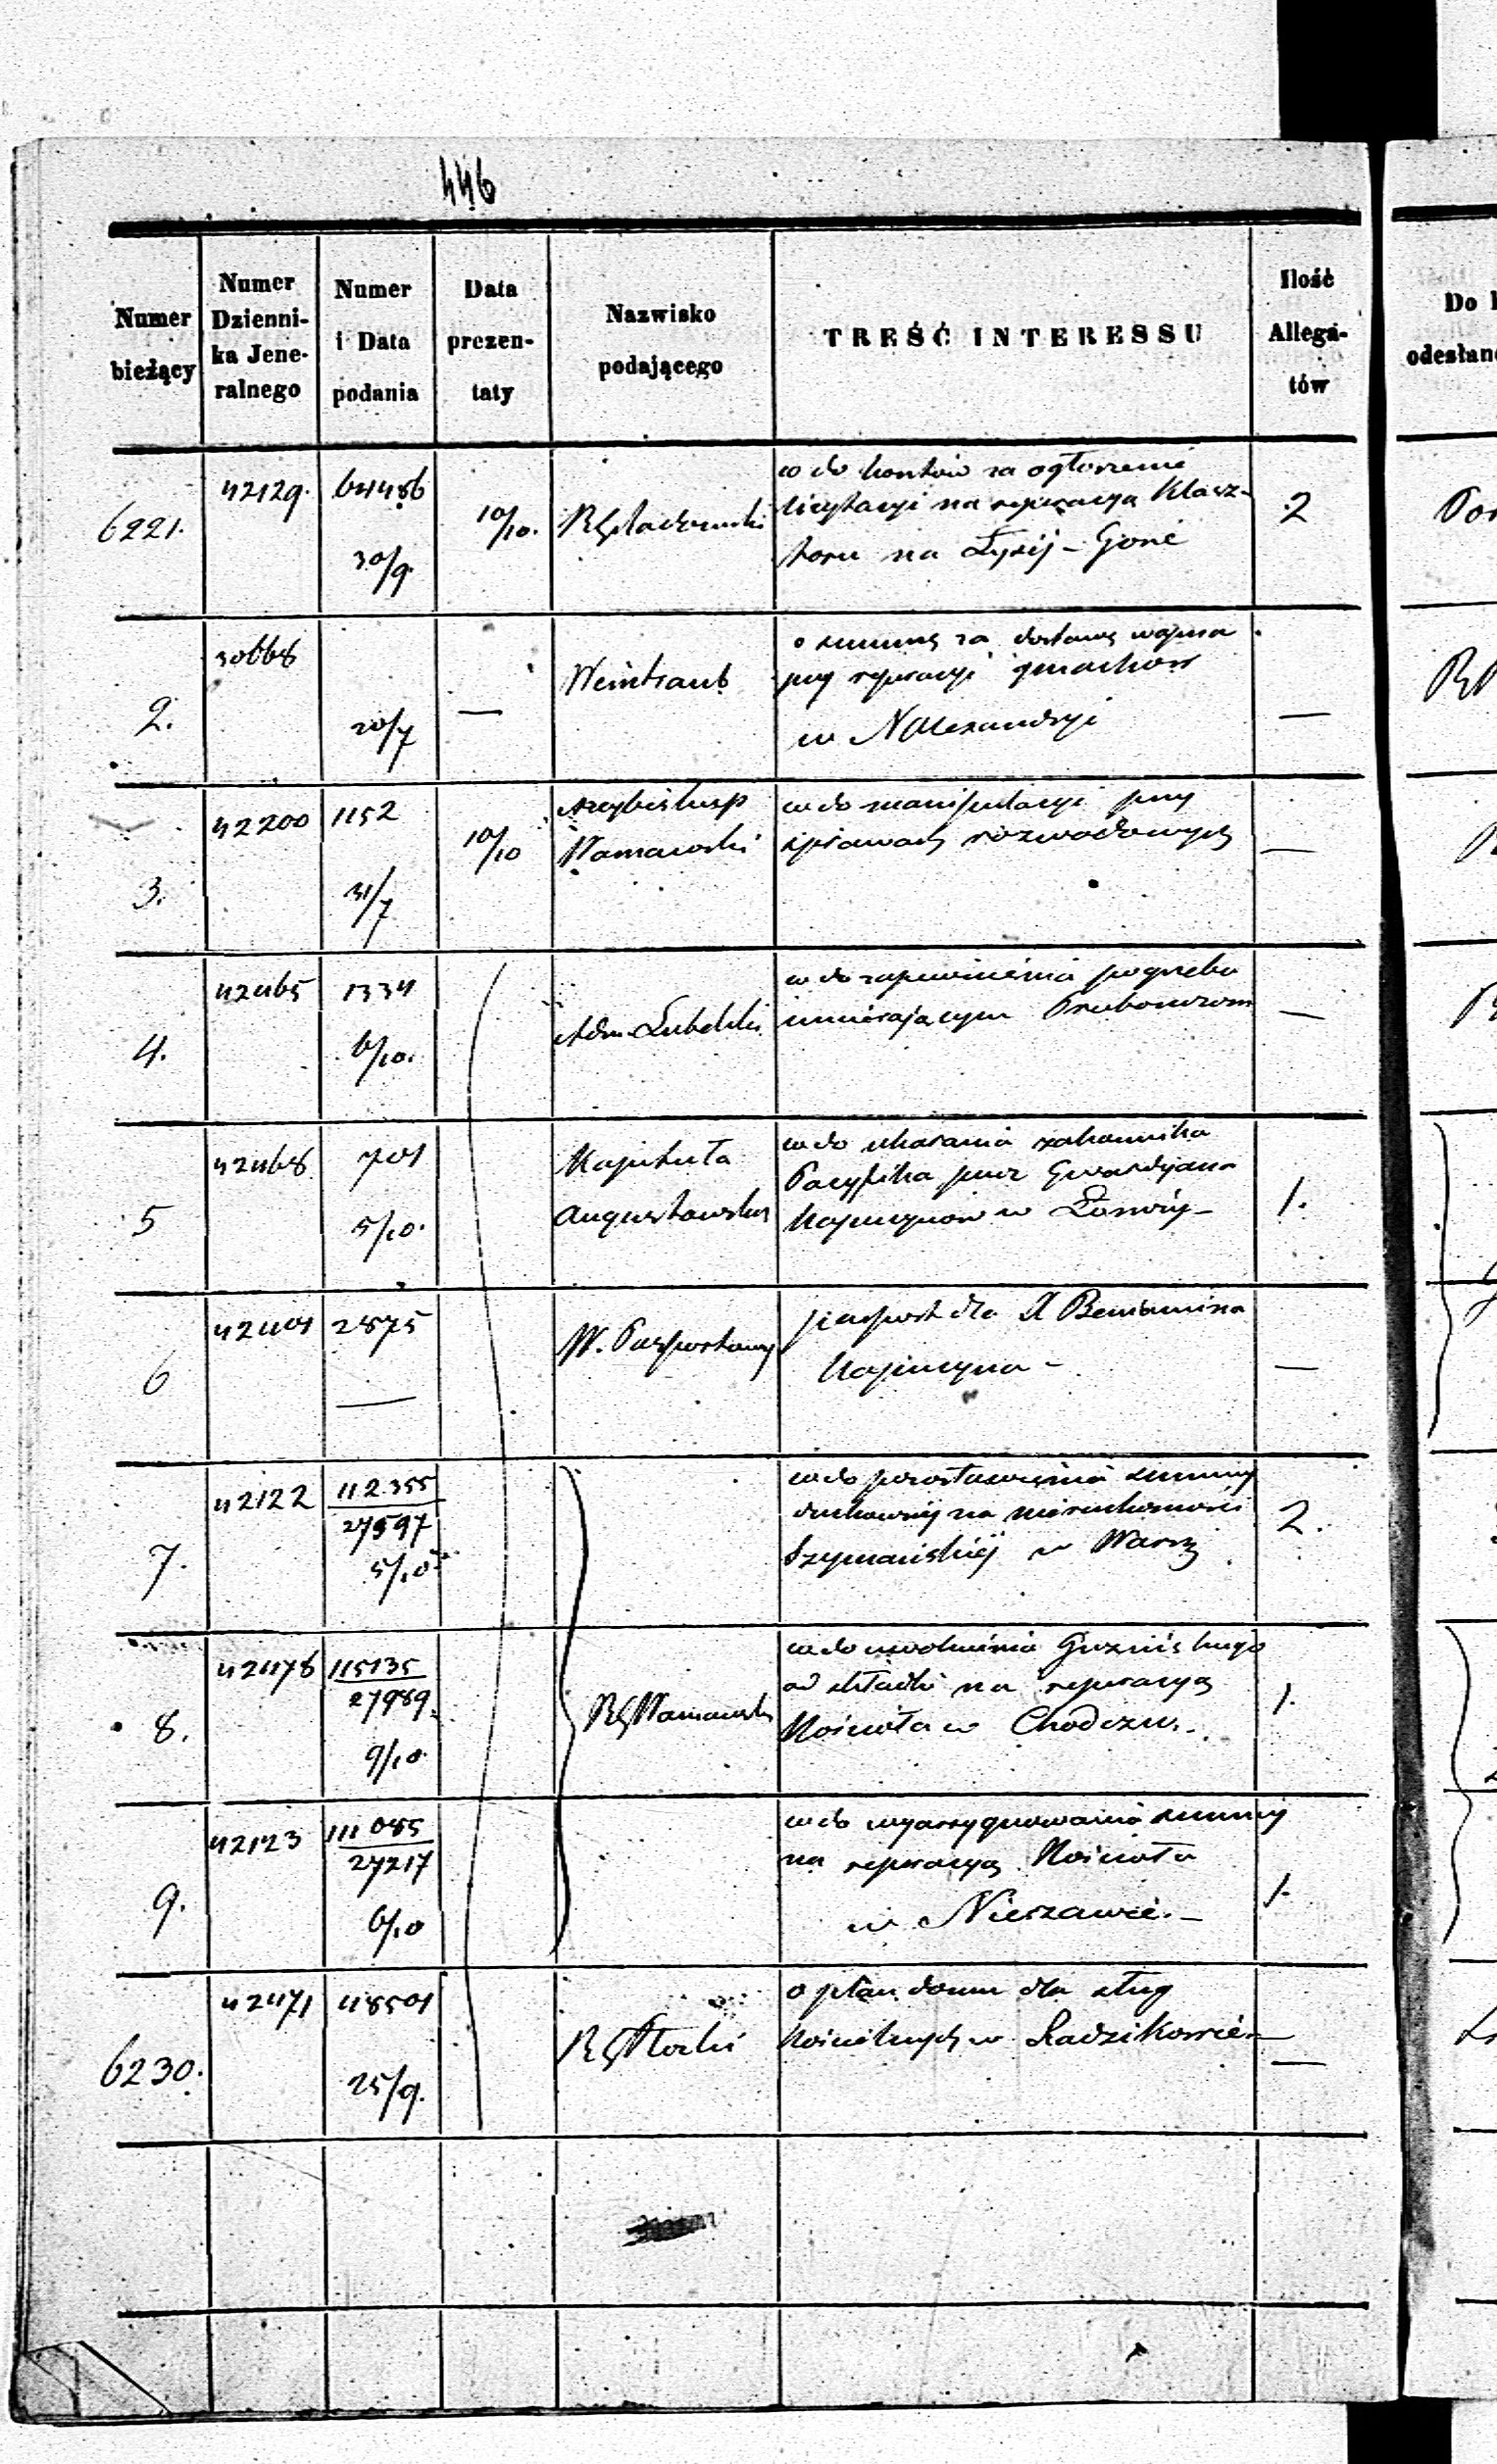 446
Numer bieżący
Numer Dzienni-ka Jene-ralnego
Numer i Data podania
Data prezen-taty
Nazwisko podającego
TREŚĆ INTERESSU
Ilość Allega-tów
Do
odesłan
6221.
42129.
64486
30/9.
10/10.
w do kosztów za ogłoszenie
licytacyi na reperacyą Klasz-
toru na Łysej-Górze
2
2.
30668
20/7
—
Weintraub
o summę za dostawę wapna
przy reperacyi gmachów
w NAlexandryi
—
3.
42200
1152
31/7
10/10
Arcybiskup
Warszawski
w do manipulacyi przy
sprawach rozwodowych
—
4.
42465
1334
6/10.
Adm. Lubelski
w do zapewnienia pogrzebu
umierającym Proboszczom
—
5
42468
701
5/10.
Kapituła
Augustowska
w do ukarania zakonnika
Pacyfika przez Gwardyana
Kapucynów w Łomży-
1.
6
2875
—
W. Paszportowy
paszport dla X Beniamina
Kapucyna -
—
7.
42122
112355
27597
5/10.
w do pozostawienia summy
duchownej na nieruchomości
Szymańskiéj w Warsz
2.
8.
42478
115135
27989.
9/10.
RG Warszawski
w do uwolnienia
od składki na reperacyą
Kościoła w Chodczu.-
1.
9.
42123
111085
27217
6/10
w do wyassygnowania summy
na reperacyą Kościoła
w Nieszawie.-
1.
6230.
42471
48501
25/9.
RG Płocki
o plan domu dla sług
Kościelnych w Radzikowie-
—